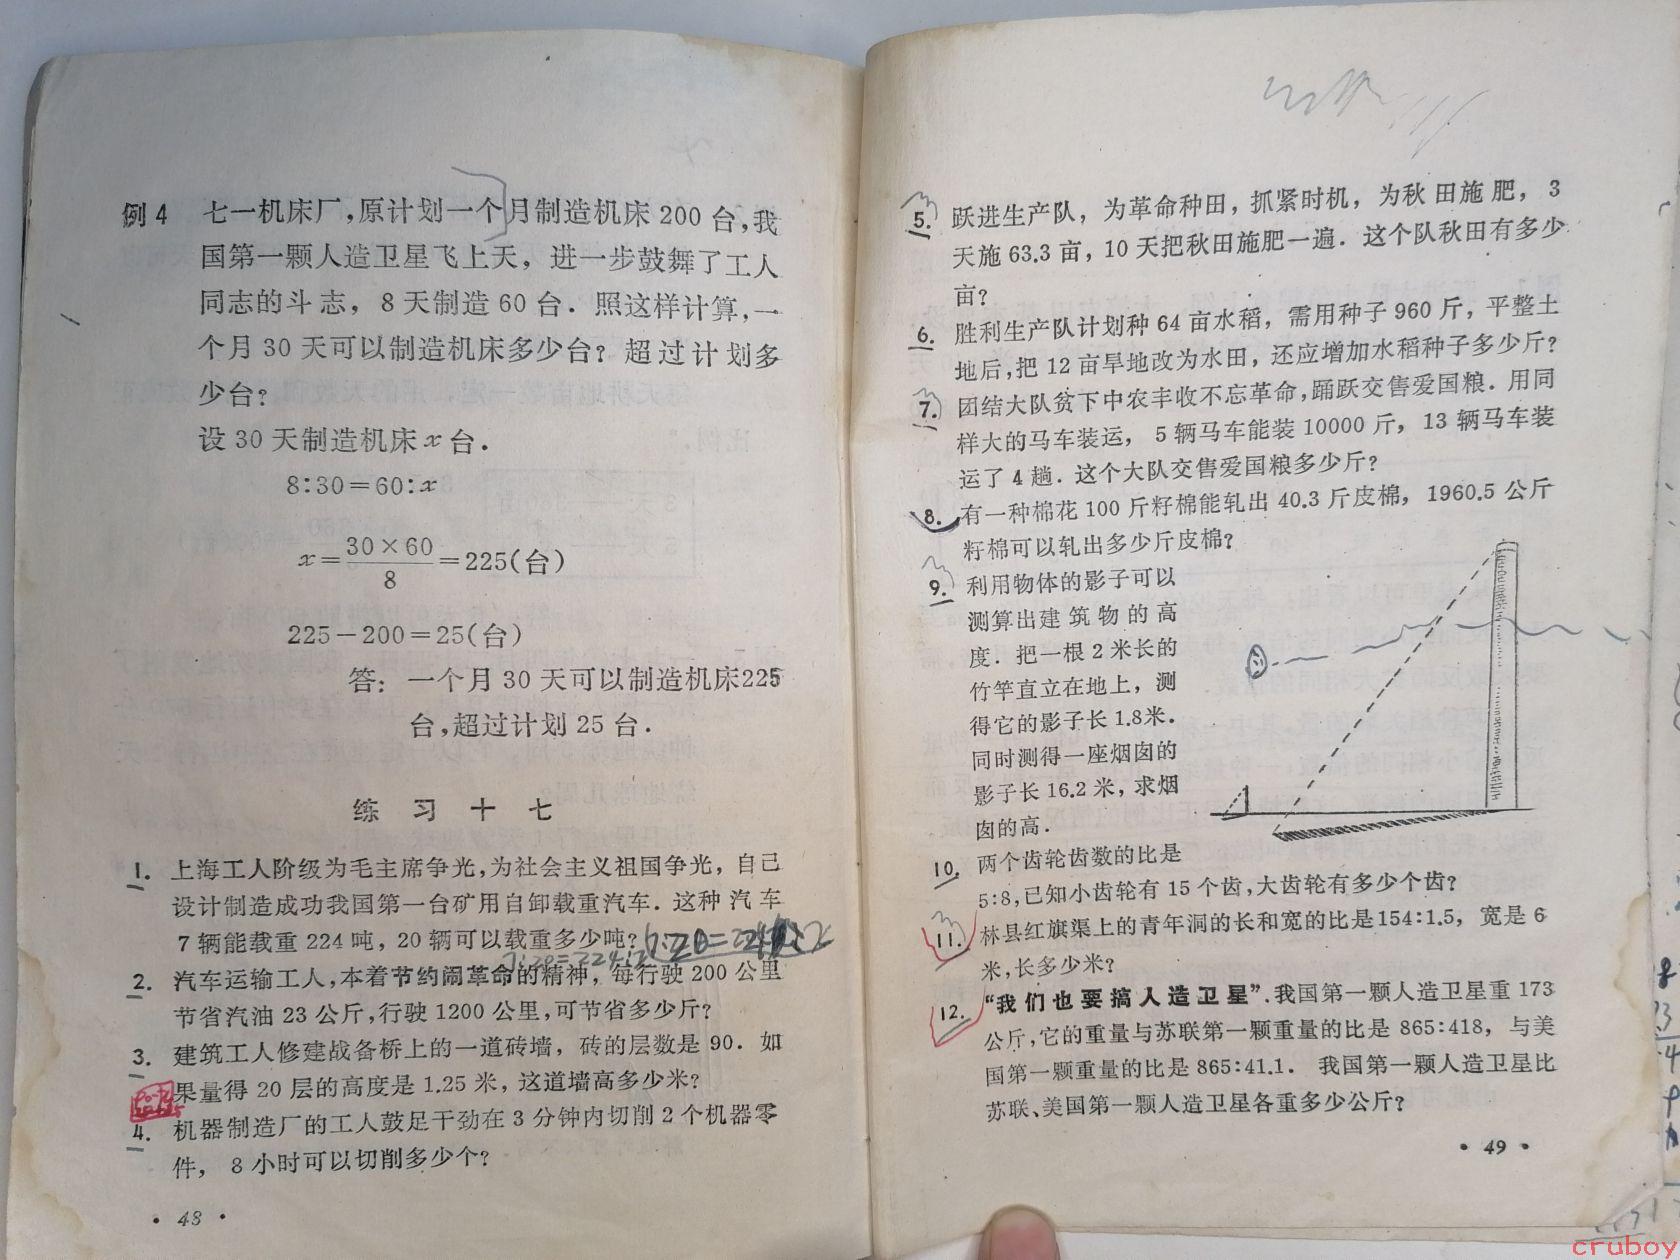 例4 七一机床厂,原计划一个月制造机床200台,我
国第一颗人造卫星飞上天，进一步鼓舞了工人
同志的斗志，8天制造60台．照这样计算,一
个月30天可以制造机床多少台？超过计划多
少台？
设30天制造机床x台．
8:30=60:x
x=30×60/8=225(台)
225-200=25(台)
答：一个月30天可以制造机床225
台,超过计划25台．
练习十七
1. 上海工人阶级为毛主席争光,为社会主义祖国争光，自己
设计制造成功我国第一台矿用自卸载重汽车．这种汽车
7辆能载重224吨，20辆可以载重多少吨？
7:20=224:x
2. 汽车运输工人,本着节约闹革命的精神，每行驶200公里
节省汽油23公斤,行驶1200公里,可节省多少斤？
3. 建筑工人修建战备桥上的一道砖墙，砖的层数是90．如
果量得20层的高度是1.25米，这道墙高多少米？
4. 机器制造厂的工人鼓足干劲在3分钟内切削2个机器零
件，8小时可以切削多少个？
• 48 •
5. 跃进生产队，为革命种田，抓紧时机，为秋田施肥，3
天施63.3亩，10天把秋田施肥一遍．这个队秋田有多少
亩？
6. 胜利生产队计划种64亩水稻，需用种子960斤，平整土
地后,把12亩旱地改为水田，还应增加水稻种子多少斤？
7. 团结大队贫下中农丰收不忘革命,踊跃交售爱国粮．用同
样大的马车装运，5辆马车能装10000斤，13辆马车装
运了4趟．这个大队交售爱国粮多少斤？
8. 有一种棉花100斤籽棉能轧出40.3斤皮棉，1960.5公斤
籽棉可以轧出多少斤皮棉？
9. 利用物体的影子可以
测算出建筑物的高
度．把一根2米长的
竹竿直立在地上，测
得它的影子长1.8米．
同时测得一座烟囱的
影子长16.2米，求烟
囱的高．
10. 两个齿轮齿数的比是
5:8,已知小齿轮有15个齿,大齿轮有多少个齿？
11. 林县红旗渠上的青年洞的长和宽的比是154:1.5，宽是6
米,长多少米？
12. “我们也要搞人造卫星”．我国第一颗人造卫星重173
公斤,它的重量与苏联第一颗重量的比是865:418，与美
国第一颗重量的比是865:41.1．我国第一颗人造卫星比
苏联、美国第一颗人造卫星各重多少公斤？
• 49 •
cruboy